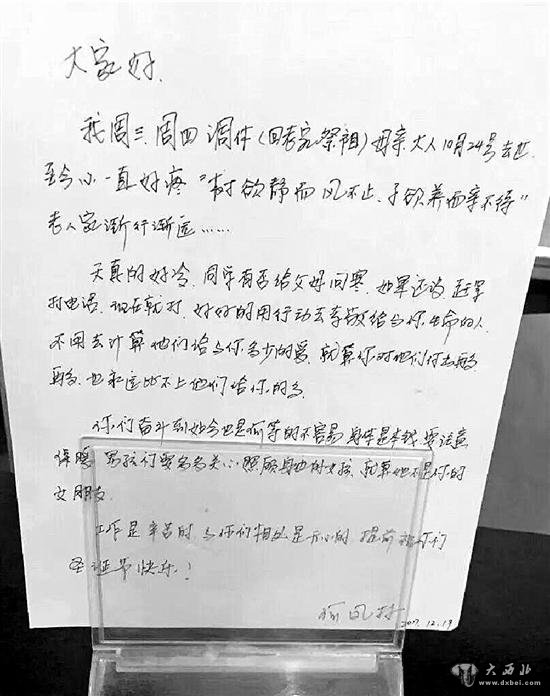 大家好.
我周三、周四调休(回老家祭祖)母亲大人10月24号去世
至今心一直好疼“树欲静而风不止、子欲养而亲不待”
老人家渐行渐远……
天真的好冷、同学有否给父母问寒、如果还没、赶紧
打电话、现在就打、好好的用行动去孝敬给与你生命的人、
不用去计算他们给与你多少的爱、就算你对他们付出再多
再多、也永远比不上他们给你的多
你们奋斗到如今也是何等的不容易、身体是本钱、要注意
保暖、男孩们要多多关心照顾身边的女孩、就算她不是你的
女朋友、
工作是辛苦的、与你们相处是开心的、提前祝你们
圣诞节快乐!
2017.12.19
大西北
www.dxbei.com